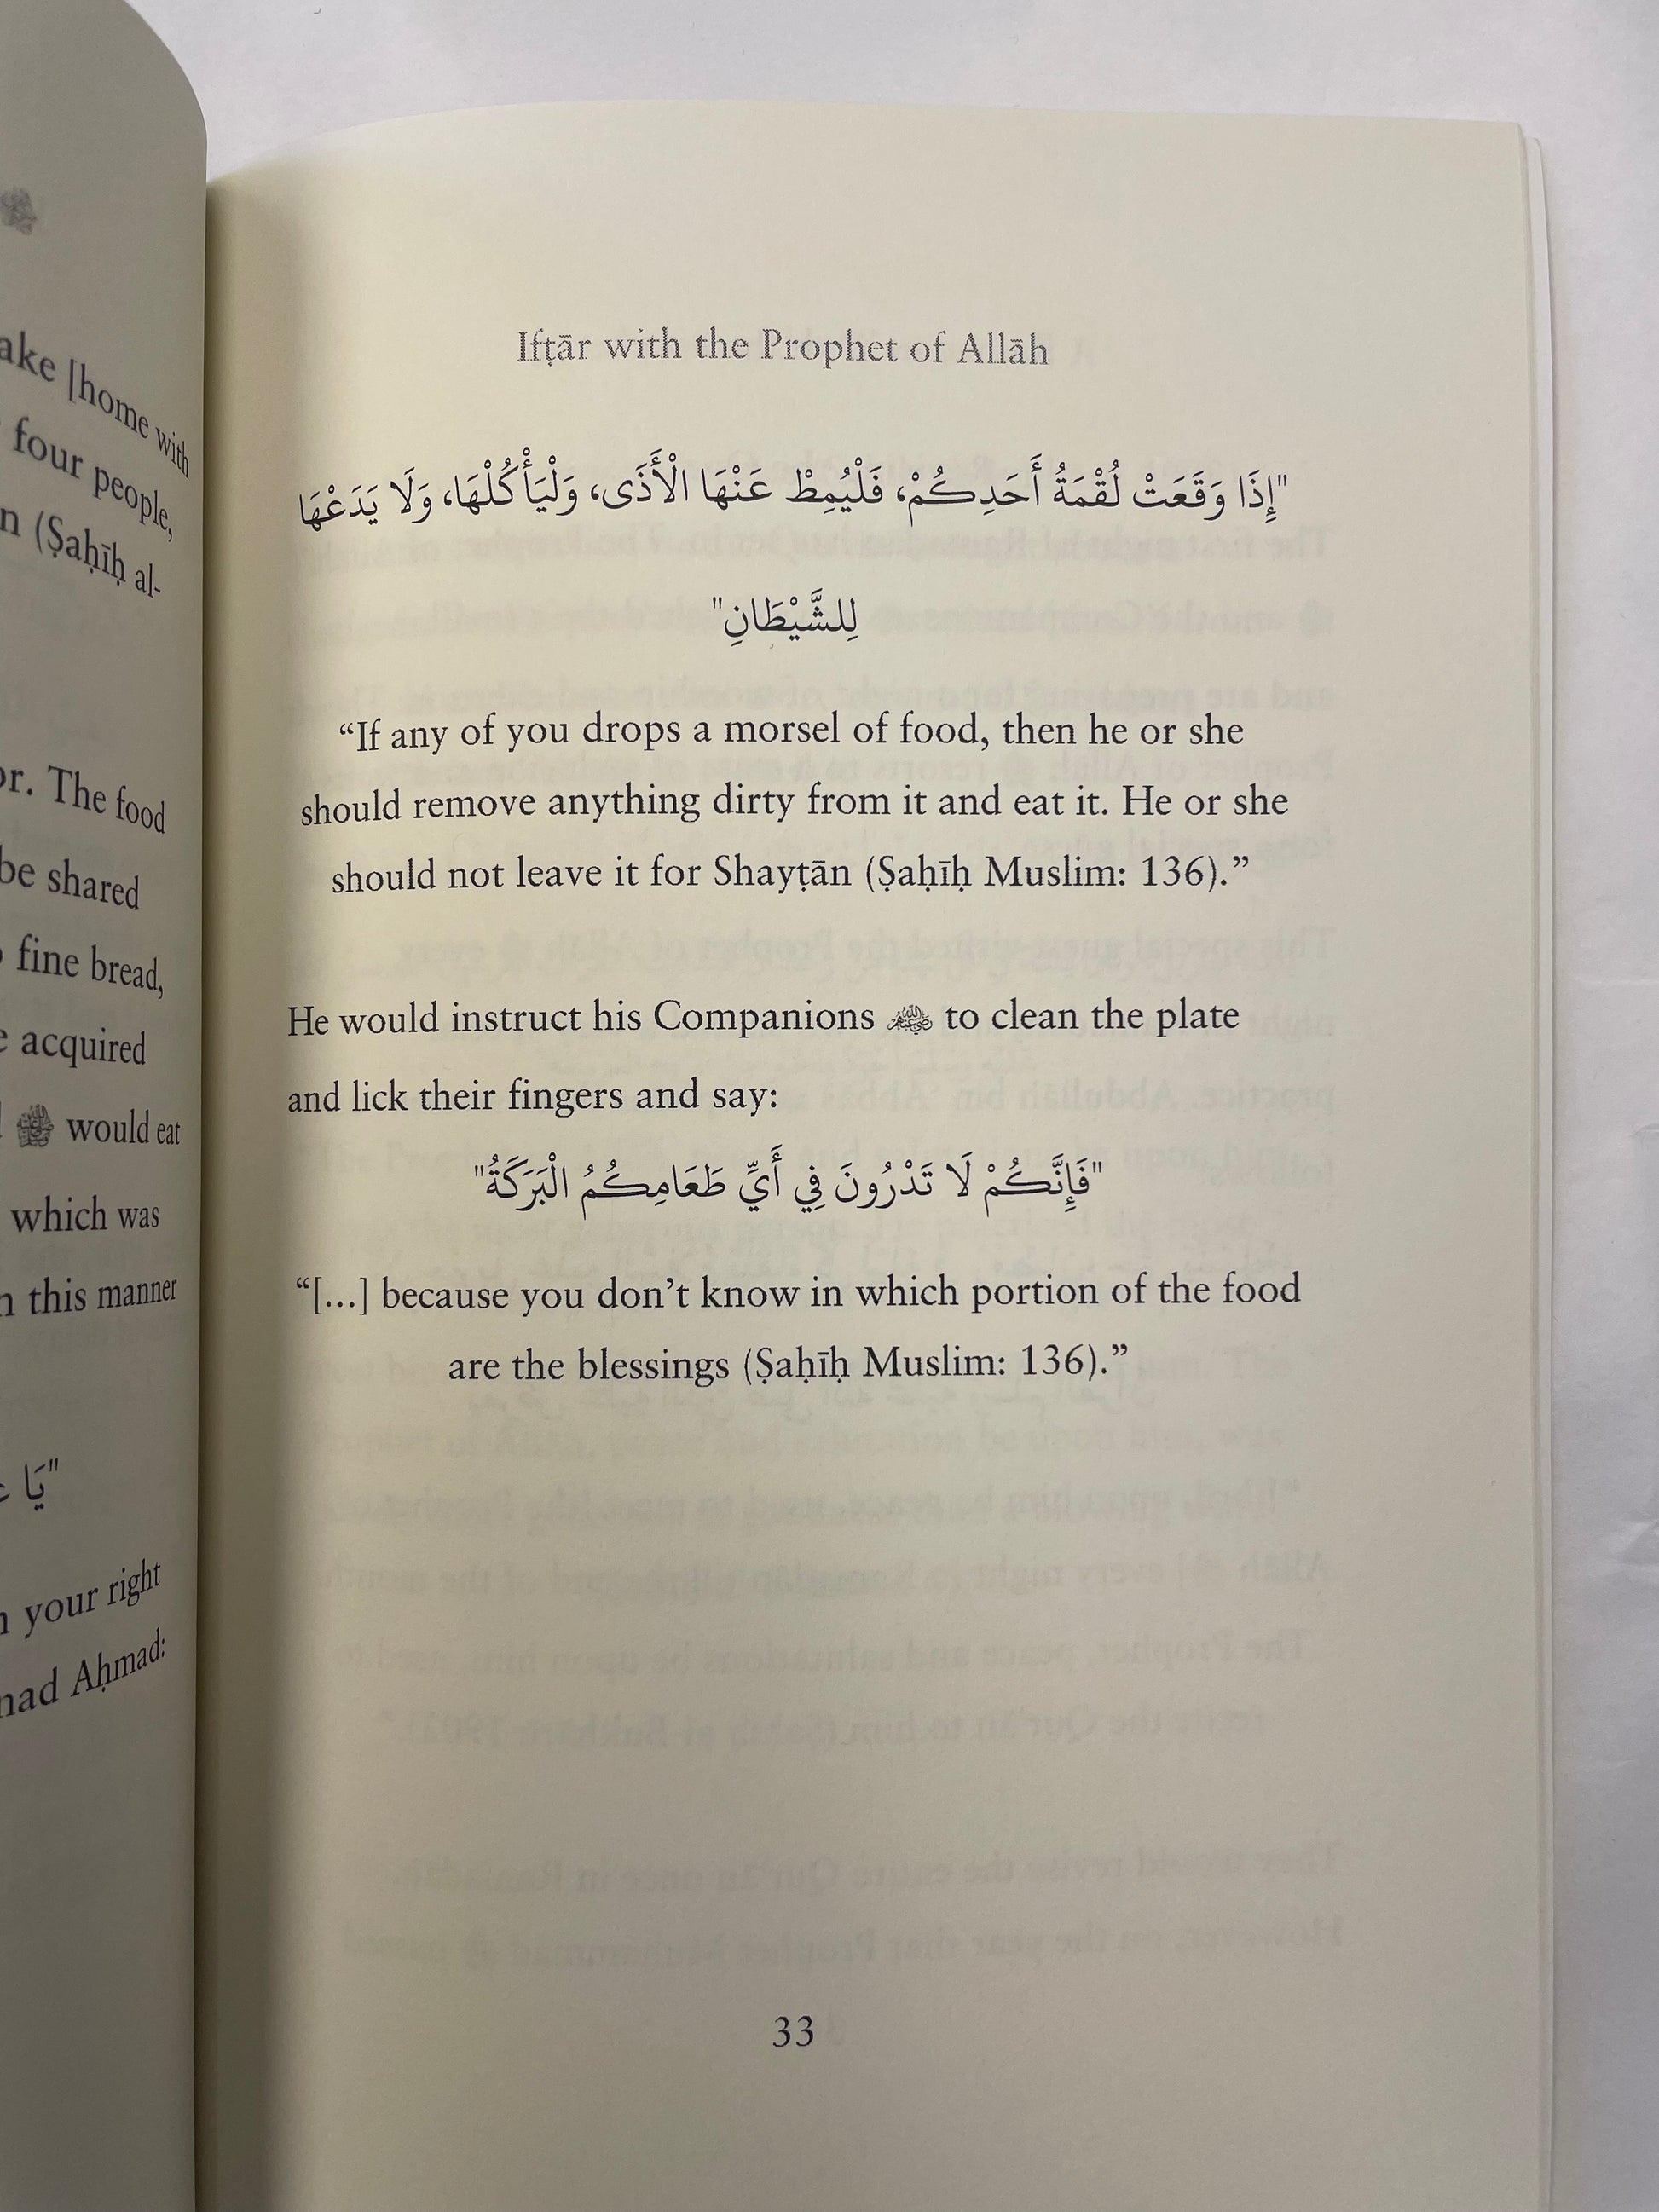 ake [home with
four people,
n (Ṣaḥīḥ al-
or. The food
be shared
fine bread,
acquired
ﷺ would eat
which was
this manner
"يَا
your right
Aḥmad:
Ifṭār with the Prophet of Allāh
"إِذَا وَقَعَتْ لُقْمَةُ أَحَدِكُمْ، فَلْيُمِطْ عَنْهَا الْأَذَى، وَلْيَأْكُلْهَا، وَلَا يَدَعْهَا
لِلشَّيْطَانِ"
“If any of you drops a morsel of food, then he or she
should remove anything dirty from it and eat it. He or she
should not leave it for Shayṭān (Ṣaḥīḥ Muslim: 136).”
He would instruct his Companions to clean the plate
and lick their fingers and say:
"فَإِنَّكُمْ لَا تَدْرُونَ فِي أَيِّ طَعَامِكُمُ الْبَرَكَةُ"
“[...] because you don’t know in which portion of the food
are the blessings (Ṣaḥīḥ Muslim: 136).”
33